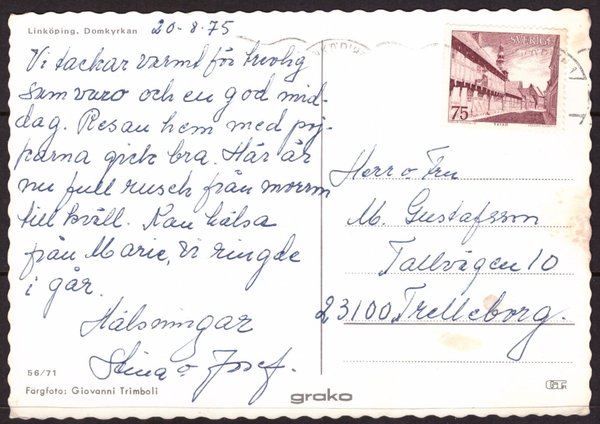 Linköping. Domkyrkan 20-8.75
Vi tackar varmt för trevlig
samvaro och en god mid-
dag. Resan hem med poj-
karna gick bra. Här är
nu full rusch från morron
till kväll. Kan hälsa
från Marie, vi ringde
i går.
Hälsningar
Stina o Josef.
56/71
Färgfoto: Giovanni Trimboli
grako
SVERIGE
75
Herr o Fru
M. Gustafsson
Tallvägen 10
23100 Trelleborg.